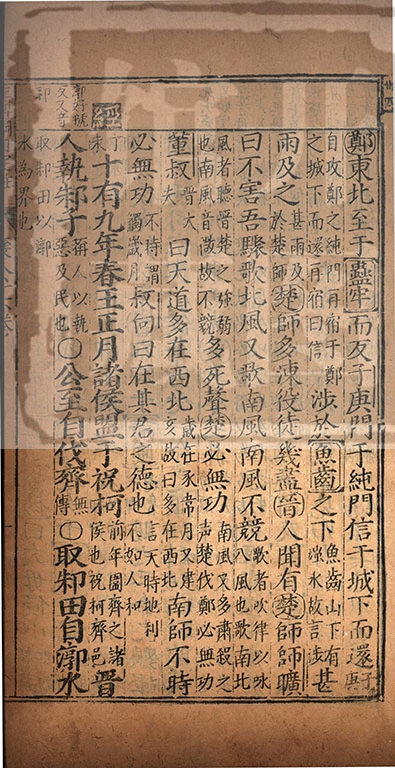 鄭東北至于蟲牢而反子庚門于純門信于城下而還子庚
自攻鄭之純門再宿于鄭之城下而還再宿曰信涉於魚齒之下魚齒山下有滍水故言涉甚
雨及之甚雨及於楚師楚師多凍役徒幾盡晉人聞有楚師師曠
曰不害吾驟歌北風又歌南風南風不競歌者吹律以咏八風也歌南北
風者聽晉楚之強弱也南風音微故不競多死聲楚必無功南風又多肅殺之聲楚伐鄭必無功
董叔晉大夫曰天道多在西北歲在豕常月又建亥故曰多在西北南師不時
必無功不時謂觸歲月叔向曰在其君之德也信天時地利不如人和
經十有九年春王正月諸侯盟于祝柯前年圍齊之諸侯也祝柯齊邑晉
人執邾子稱人以執惡及民也〇公至自伐齊無傳〇取邾田自漷水
取邾田以漷水為界也